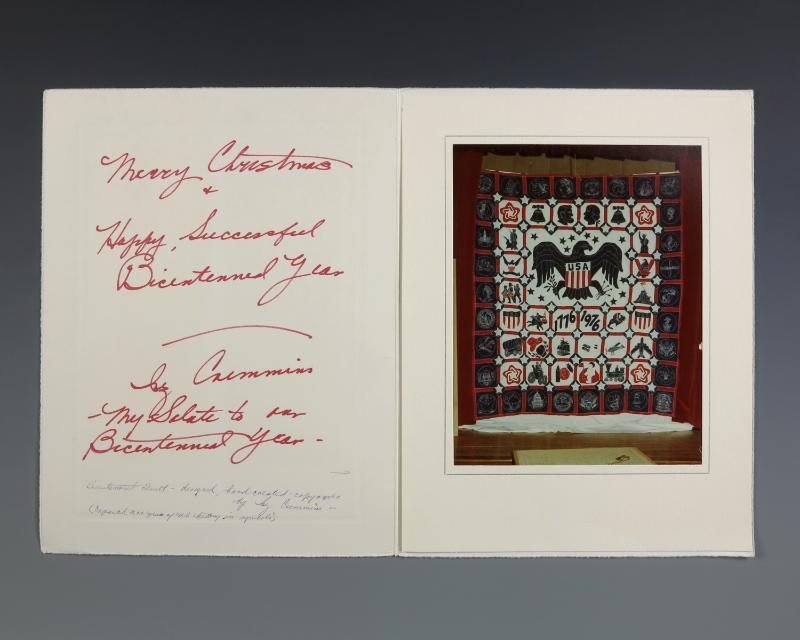 Merry Christmas
+
Happy, Successful
Bicentennial Year
by Cremmins
-My Salute to our
Bicentennial Year-
Bicentennial Quilt - designed, hand created - copyrighted
by Cremmins -
(Depicts 200 years of US history in symbols)
USA
1776 1976